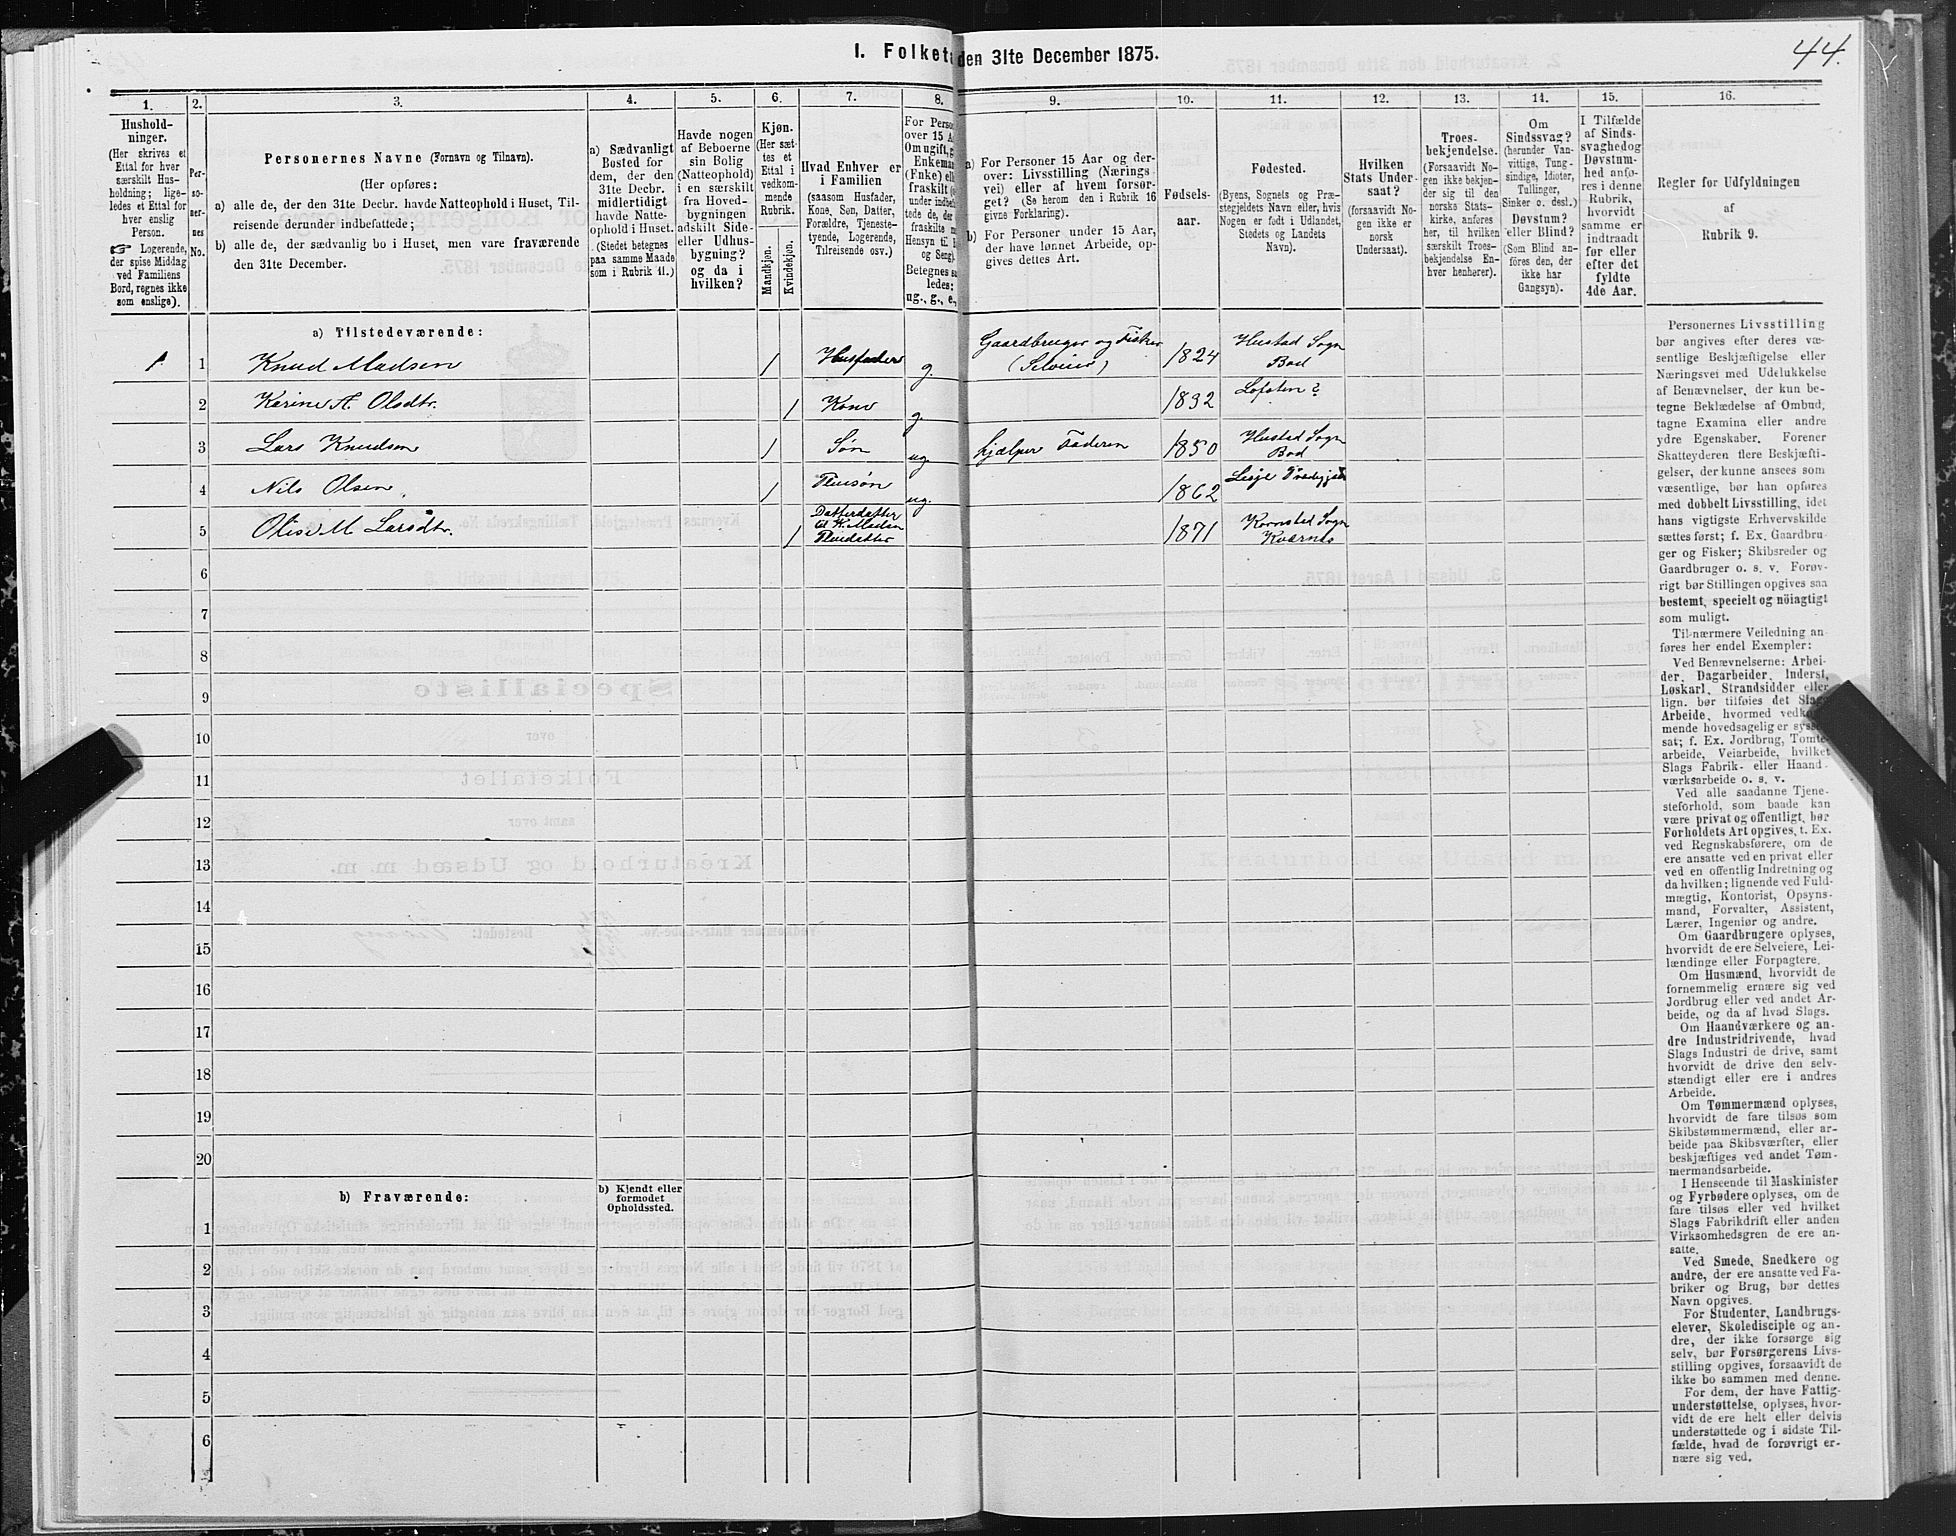 44.
I. Folketæ den 31te December 1875.
1. 2. 3. 4. 5. 6. 7. 8. 9. 10. 11. 12. 13. 14. 15. 16.
Hushold-
ninger.
(Her skrives et
Ettal for hver
særskilt Hus-
holdning; lige-
ledes et Ettal for
hver enslig
Person.
☞ Logerende,
der spise Middag
ved Familiens
Bord, regnes ikke
som enslige).
Per-
so-
ner-
nes
No.
Personernes Navne (Fornavn og Tilnavn).
(Her opføres:
a) alle de, der den 31te Decbr. havde Natteophold i Huset, Til-
reisende derunder indbefattede;
b) alle de, der sædvanlig bo i Huset, men vare fraværende
den 31te December.
a) Sædvanligt
Bosted for
dem, der den
31te Decbr.
midlertidigt
havde Natte-
ophold i Huset.
(Stedet betegnes
paa samme Maade
som i Rubrik 11.)
Havde nogen
af Beboerne
sin Bolig
(Natteophold)
i en særskilt
fra Hoved-
bygningen
adskilt Side-
eller Udhus-
bygning?
og da i
hvilken?
Kjøn.
(Her sæt-
tes et
Ettal i
vedkom-
mende
Rubrik.
Mandkjøn.
Kvindekjøn.
Hvad Enhver er
i Familien
(saasom Husfader,
Kone, Søn, Datter,
Forældre, Tjeneste-
tyende, Logerende,
Tilreisende osv.)
For Person
over 15 A
Om ugift, g
Enkeman
(Fnke) ell
fraskilt (
under indbef
tede de, der
fraskilte m
Hensyn til B
og Seng).
Betegnes sa
ledes:
ug., g., e.,
a) For Personer 15 Aar og der-
over: Livsstilling (Nærings-
vei) eller af hvem forsør-
get? (Se herom den i Rubrik 16
givne Forklaring).
b) For Personer under 15 Aar,
der have lønnet Arbeide, op-
gives dettes Art.
Fødsels-
aar.
Fødested.
(Byens, Sognets og Præ-
stegjeldets Navn eller, hvis
Nogen er født i Udlandet,
Stedets og Landets
Navn).
Hvilken
Stats Under-
saat?
(forsaavidt No-
gen ikke er
norsk
Undersaat).
Troes-
bekjendelse.
(Forsaavidt No-
gen ikke bekjen-
der sig til den
norske Stats-
kirke, anføres
her, til hvilken
særskilt Troes-
bekjendelse En-
hver henhører).
Om
Sindssvag?
(herunder Van-
vittige, Tung-
sindige, Idioter,
Tullinger,
Sinker o. desl.)
Døvstum?
eller Blind?
(Som Blind an-
føres den, der
ikke har
Gangsyn).
I Tilfælde
af Sinds-
svaghed og
Døvstum-
hed anfø-
res i denne
Rubrik,
hvorvidt
samme er
indtraadt
før eller
efter det
fyldte
4de Aar.
Regler for Udfyldningen
af
Rubrik 9.
a) Tilstedeværende:
1 1 Knud Madsen 1 Husfader g. Gaardbruger og Fisker (Selveier) 1824 Hustad Sogn Bod
2 Karine A. Olsdtr. 1 Kone g 1832 Lofoten?
3 Lars Knudsen 1 Søn ug. hjælper Faderen 1850 Hustad Sogn Bod
4 Nils Olsen 1 Pleiesøn ug. 1862
5 Olise M Larsdtr. 1 Datterdatter til K. Madsen Pleiedatter 1871 Kornstad Sogn Kværnes
6
7
8
9
10
11
12
13
14
15
16
17
18
19
20
b) Fraværende:
b) Kjendt eller
formodet
Opholdssted.
1
2
3
4
5
6
Personernes Livsstilling
bør angives efter deres væ-
sentlige Beskjæftigelse eller
Næringsvei med Udelukkelse
af Benævnelser, der kun be-
tegne Beklædelse af Ombud,
tagne Examina eller andre
ydre Egenskaber. Forener
Skatteyderen flere Beskjæfti-
gelser, der kunne ansees som
væsentlige, bør han opføres
med dobbelt Livsstilling, idet
hans vigtigste Erhvervskilde
sættes først; f. Ex. Gaardbru-
ger og Fisker; Skibsreder og
Gaardbruger o. s. v. Forøv-
rigt bør Stillingen opgives saa
bestemt, specielt og nöiagtigt
som muligt.
Til nærmere Veiledning an-
føres her endel Exempler:
Ved Benævnelserne: Arbei-
der, Dagarbeider, Inderst,
Løskarl, Strandsidder eller
lign. bør tilføies det Slags
Arbeide, hvormed vedkom-
mende hovedsagelig er syssel-
sat; f. Ex. Jordbrug, Tomte-
arbeide, Veiarbeide, hvilket
Slags Fabrik- eller Haand-
værksarbeide o. s. v.
Ved alle saadanne Tjene-
steforhold, som baade kan
være privat og offentligt, bør
Forholdets Art opgives, t. Ex.
ved Regnskabsførere, om de
ere ansatte ved en privat eller
ved en offentlig Indretning og
da hvilken; lignende ved Fuld-
mægtig, Kontorist, Opsyns-
mand, Forvalter, Assistent,
Lærer, Ingeniør og andre.
Om Gaardbrugere oplyses,
hvorvidt de ere Selveiere, Lei-
lændinge eller Forpagtere.
Om Husmænd, hvorvidt de
fornemmelig ernære sig ved
Jordbrug eller ved andet Ar-
beide, og da af hvad Slags.
Om Haandværkere og an-
dre Industridrivende, hvad
Slags Industri de drive, samt
hvorvidt de drive den selv-
stændigt eller ere i andres
Arbeide.
Om Tømmermænd oplyses,
hvorvidt de fare tilsøs som
Skibstømmermænd, eller ar-
beide paa Skibsværfter, eller
beskjæftiges ved andet Tøm-
mermandsarbeide.
I Henseende til Maskinister
og Fyrbødere oplyses, om de
fare tilsøs eller ved hvilket
Slags Fabrikdrift eller anden
Virksomhedsgren de ere an-
satte.
Ved Smede, Snedkere og
andre, der ere ansatte ved Fa-
briker og Brug, bør dettes
Navn opgives.
For Studenter, Landbrugs-
elever, Skoledisciple og an-
dre, der ikke forsørge sig
selv, bør Forsørgerens Livs-
stilling opgives, forsaavidt de
ikke bo sammen med denne.
For dem, der have Fattig-
understøttelse, oplyses, hvor-
vidt de ere helt eller delvis
understøttede og i sidste Til-
fælde, hvad de forøvrigt er-
nære sig ved.